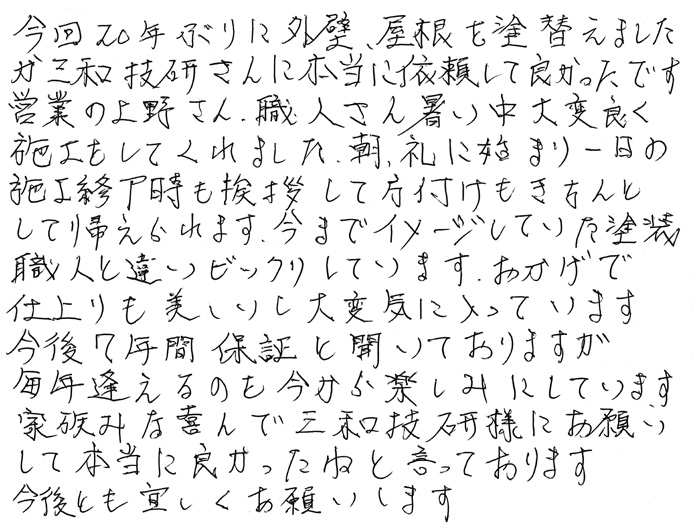 今回20年ぶりに外壁、屋根を塗替えました
が三和技研さんに本当に依頼して良かったです
営業の上野さん、職人さん暑い中大変良く
施工をしてくれました、朝、礼に始まり一日の
施工終了時も挨拶して片付けもきちんと
して帰えられます、今までイメージしていた塗装
職人と違いビックリしています、おかげで
仕上りも美しいし大変気に入っています
今後7年間保証と聞いておりますが
毎年逢えるのを今から楽しみにしています
家族みな喜んで三和技研様にお願い
して本当に良かったねと言っております
今後とも宜しくお願いします